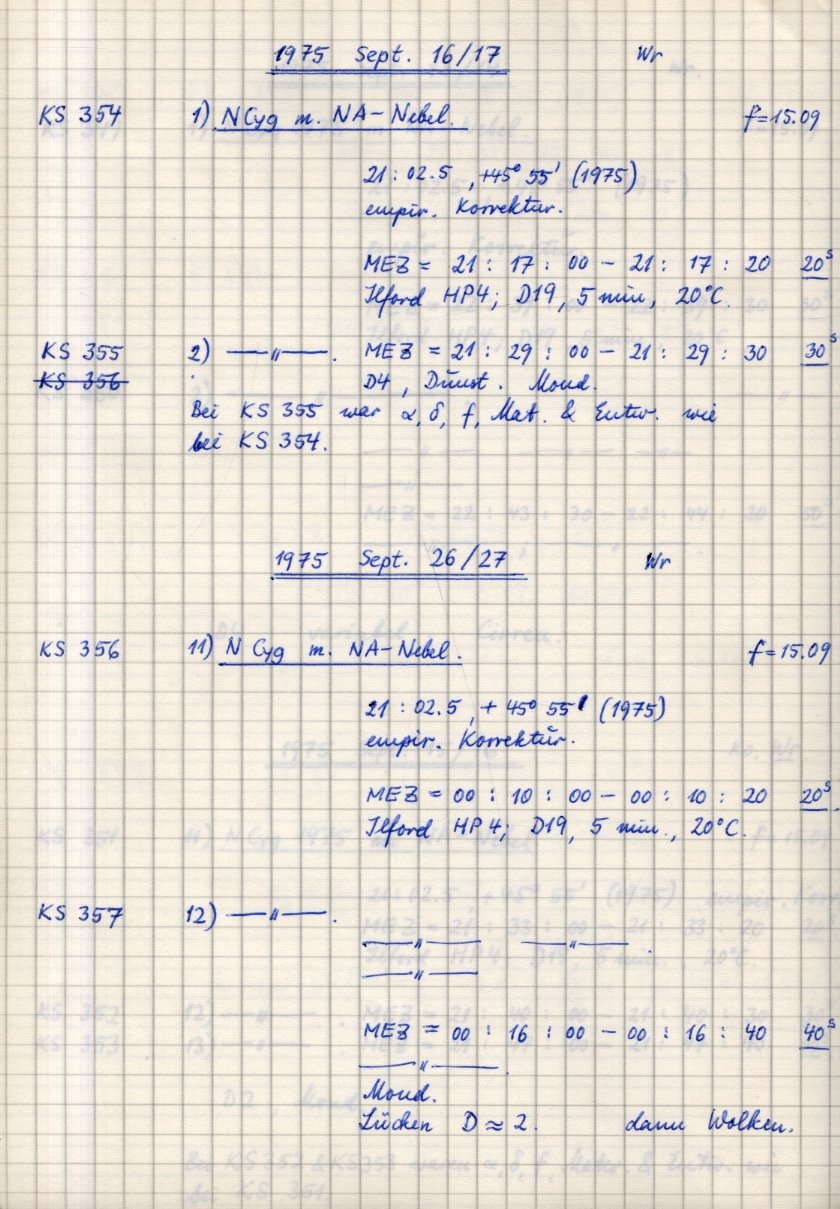 1975 Sept. 16/17 Wr
KS 354 1) N Cyg m. NA-Nebel. f=15.09
21 : 02.5, +45° 55' (1975)
empir. Korrektur.
MEZ = 21 : 17 : 00 - 21 : 17 : 20 20s
Ilford HP4; D19, 5 min, 20°C.
KS 355 2) —"—. MEZ = 21 : 29 : 00 - 21 : 29 : 30 30s
KS 356 D4, Dunst. Mond.
Bei KS 355 war α, δ, f, Mat. & Entw. wie
bei KS 354.
1975 Sept. 26/27 Wr
KS 356 11) N Cyg m. NA-Nebel. f=15.09
21 : 02.5, + 45° 55' (1975)
empir. Korrektur.
MEZ = 00 : 10 : 00 - 00 : 10 : 20 20s.
Ilford HP4; D19, 5 min., 20°C.
KS 357 12) —"—.
—"— —"—.
—"—
MEZ = 00 : 16 : 00 - 00 : 16 : 40 40s
—"—.
Mond.
Lücken D ≈ 2. dann Wolken.